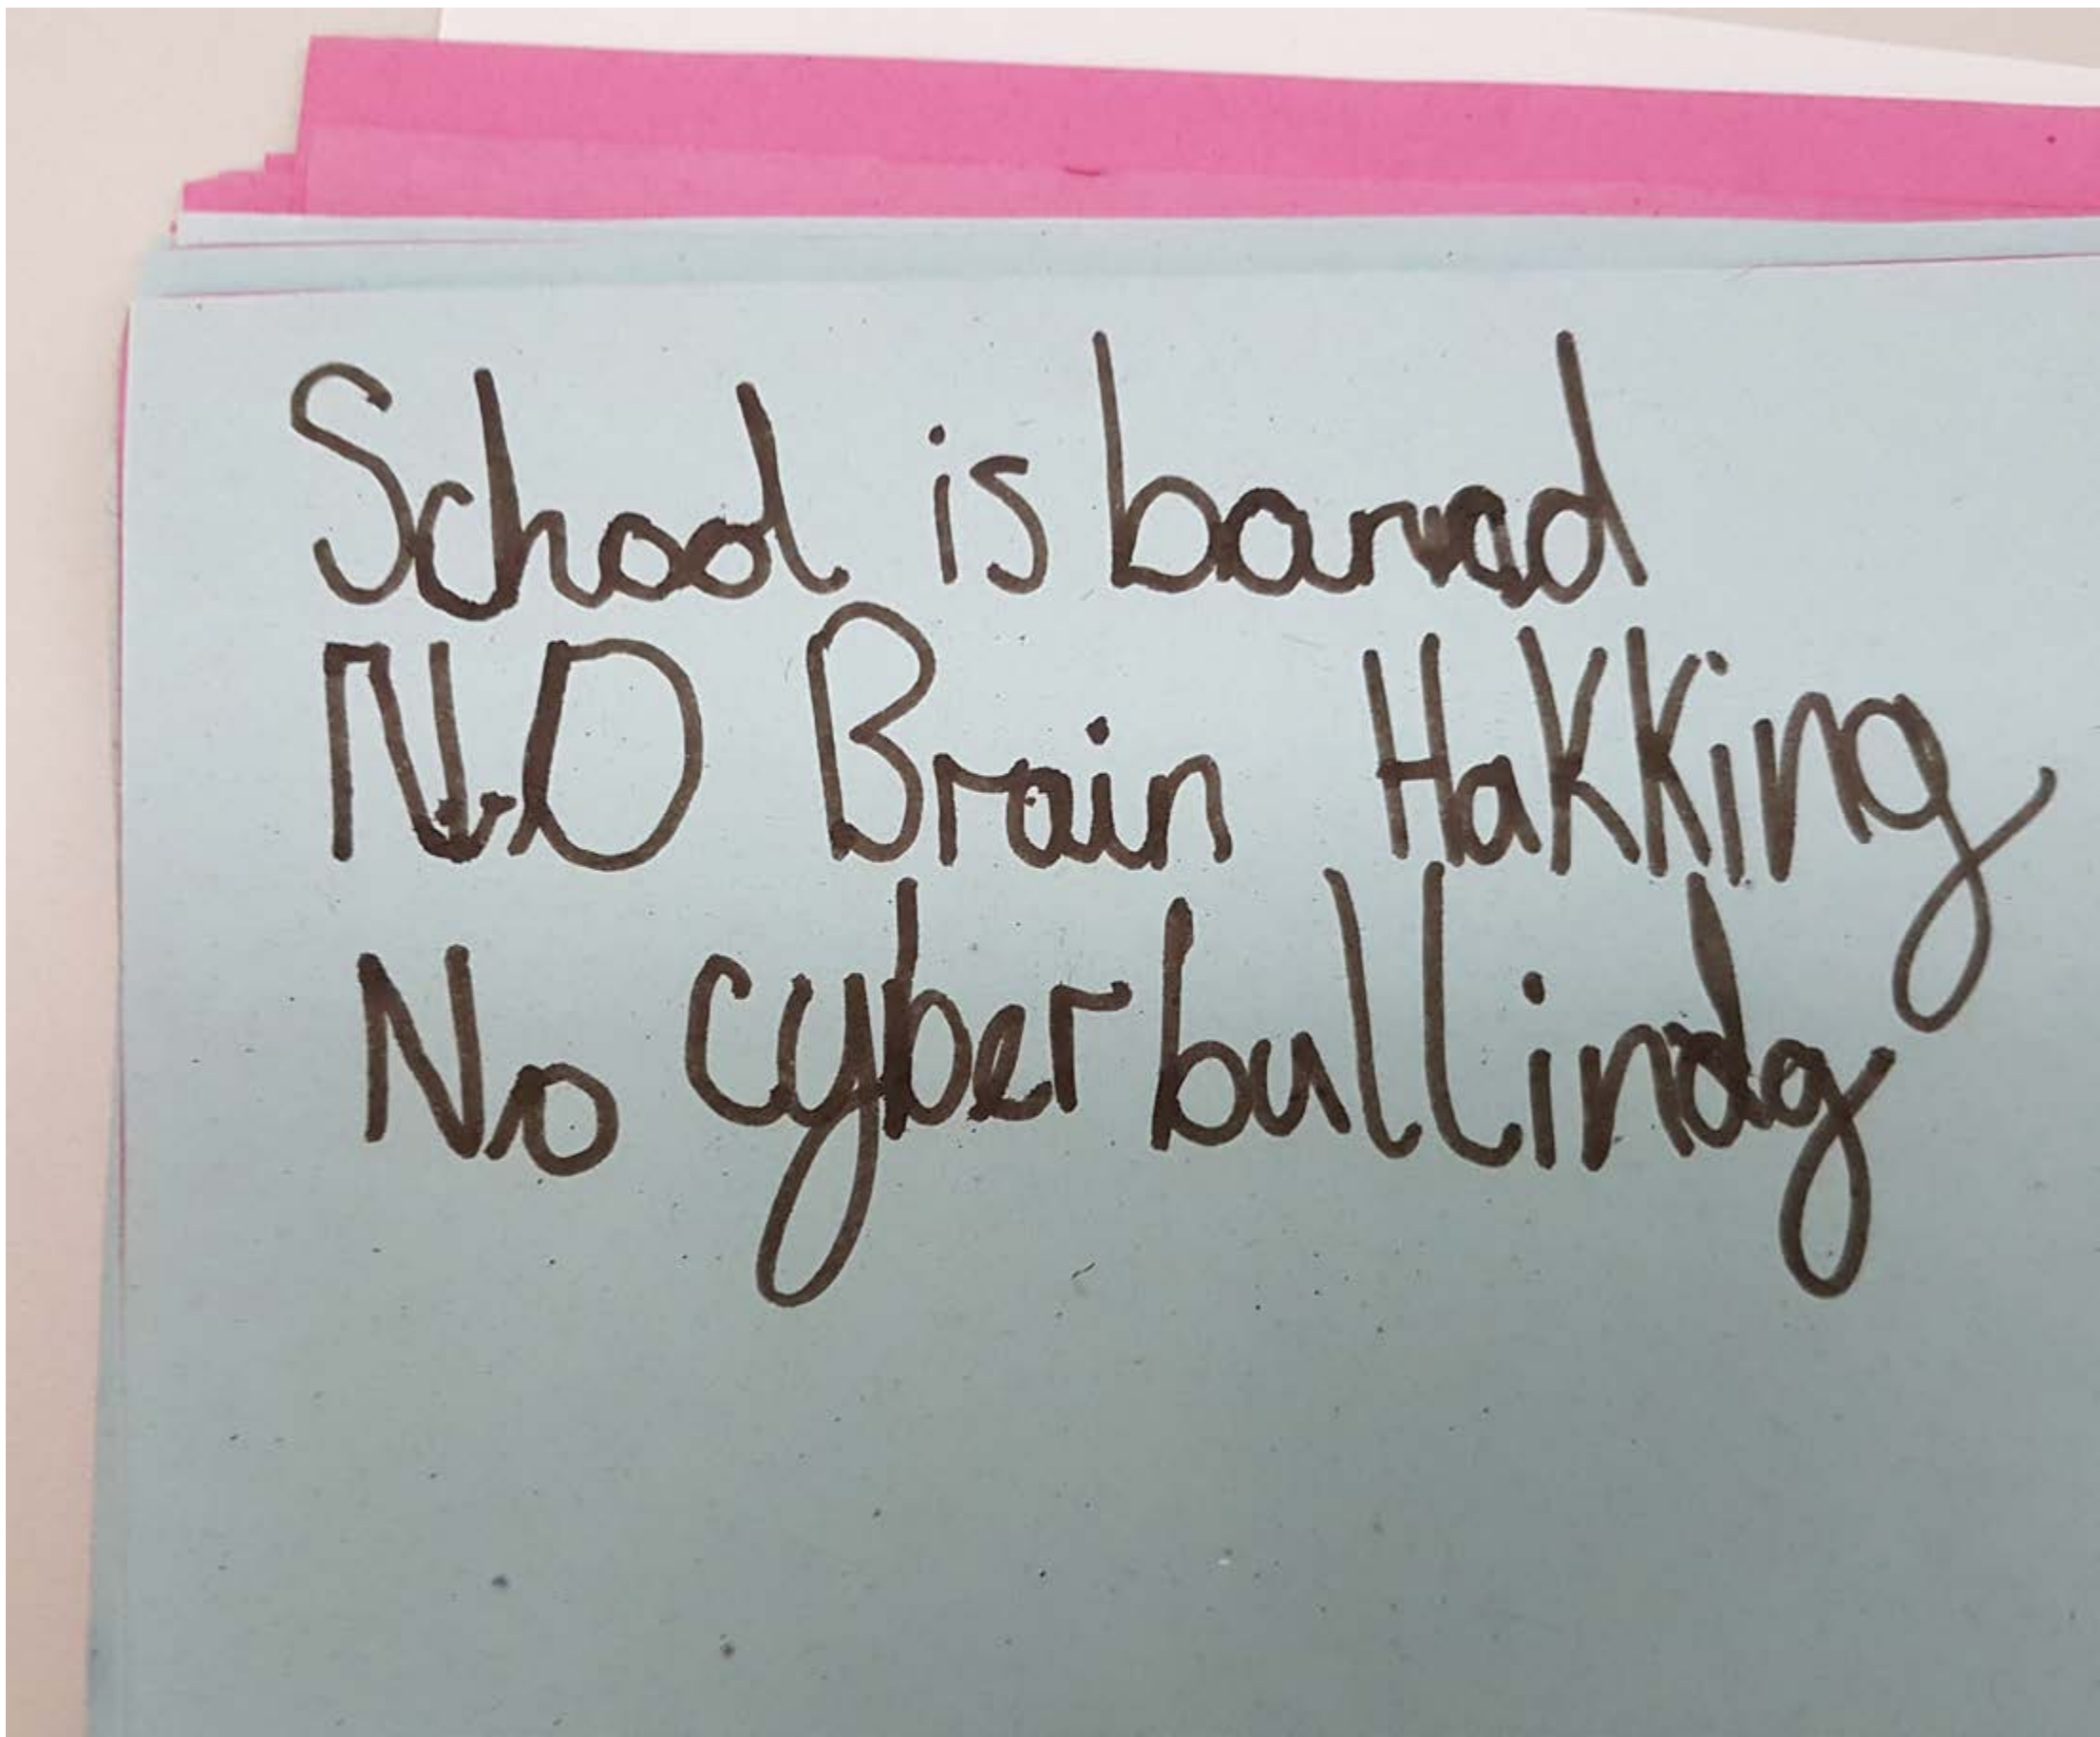 School is barved
NO Brain Hakking
No cyber bullindg